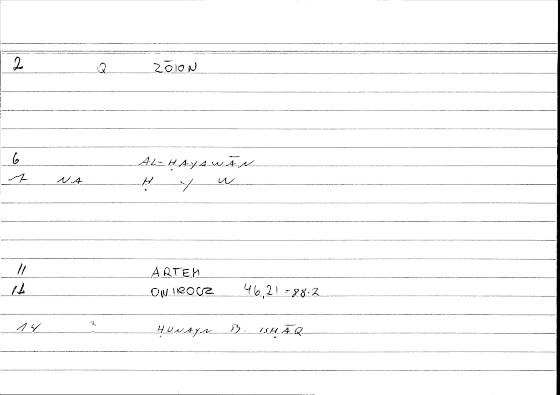 2 Q ZŌION
6 AL-ḤAYAWĀN
7 NA Ḥ Y W
11 ARTEM
12 ONIROCR 46,21 = 88.2
14 2 ḤUNAYN B. ISḤĀQ